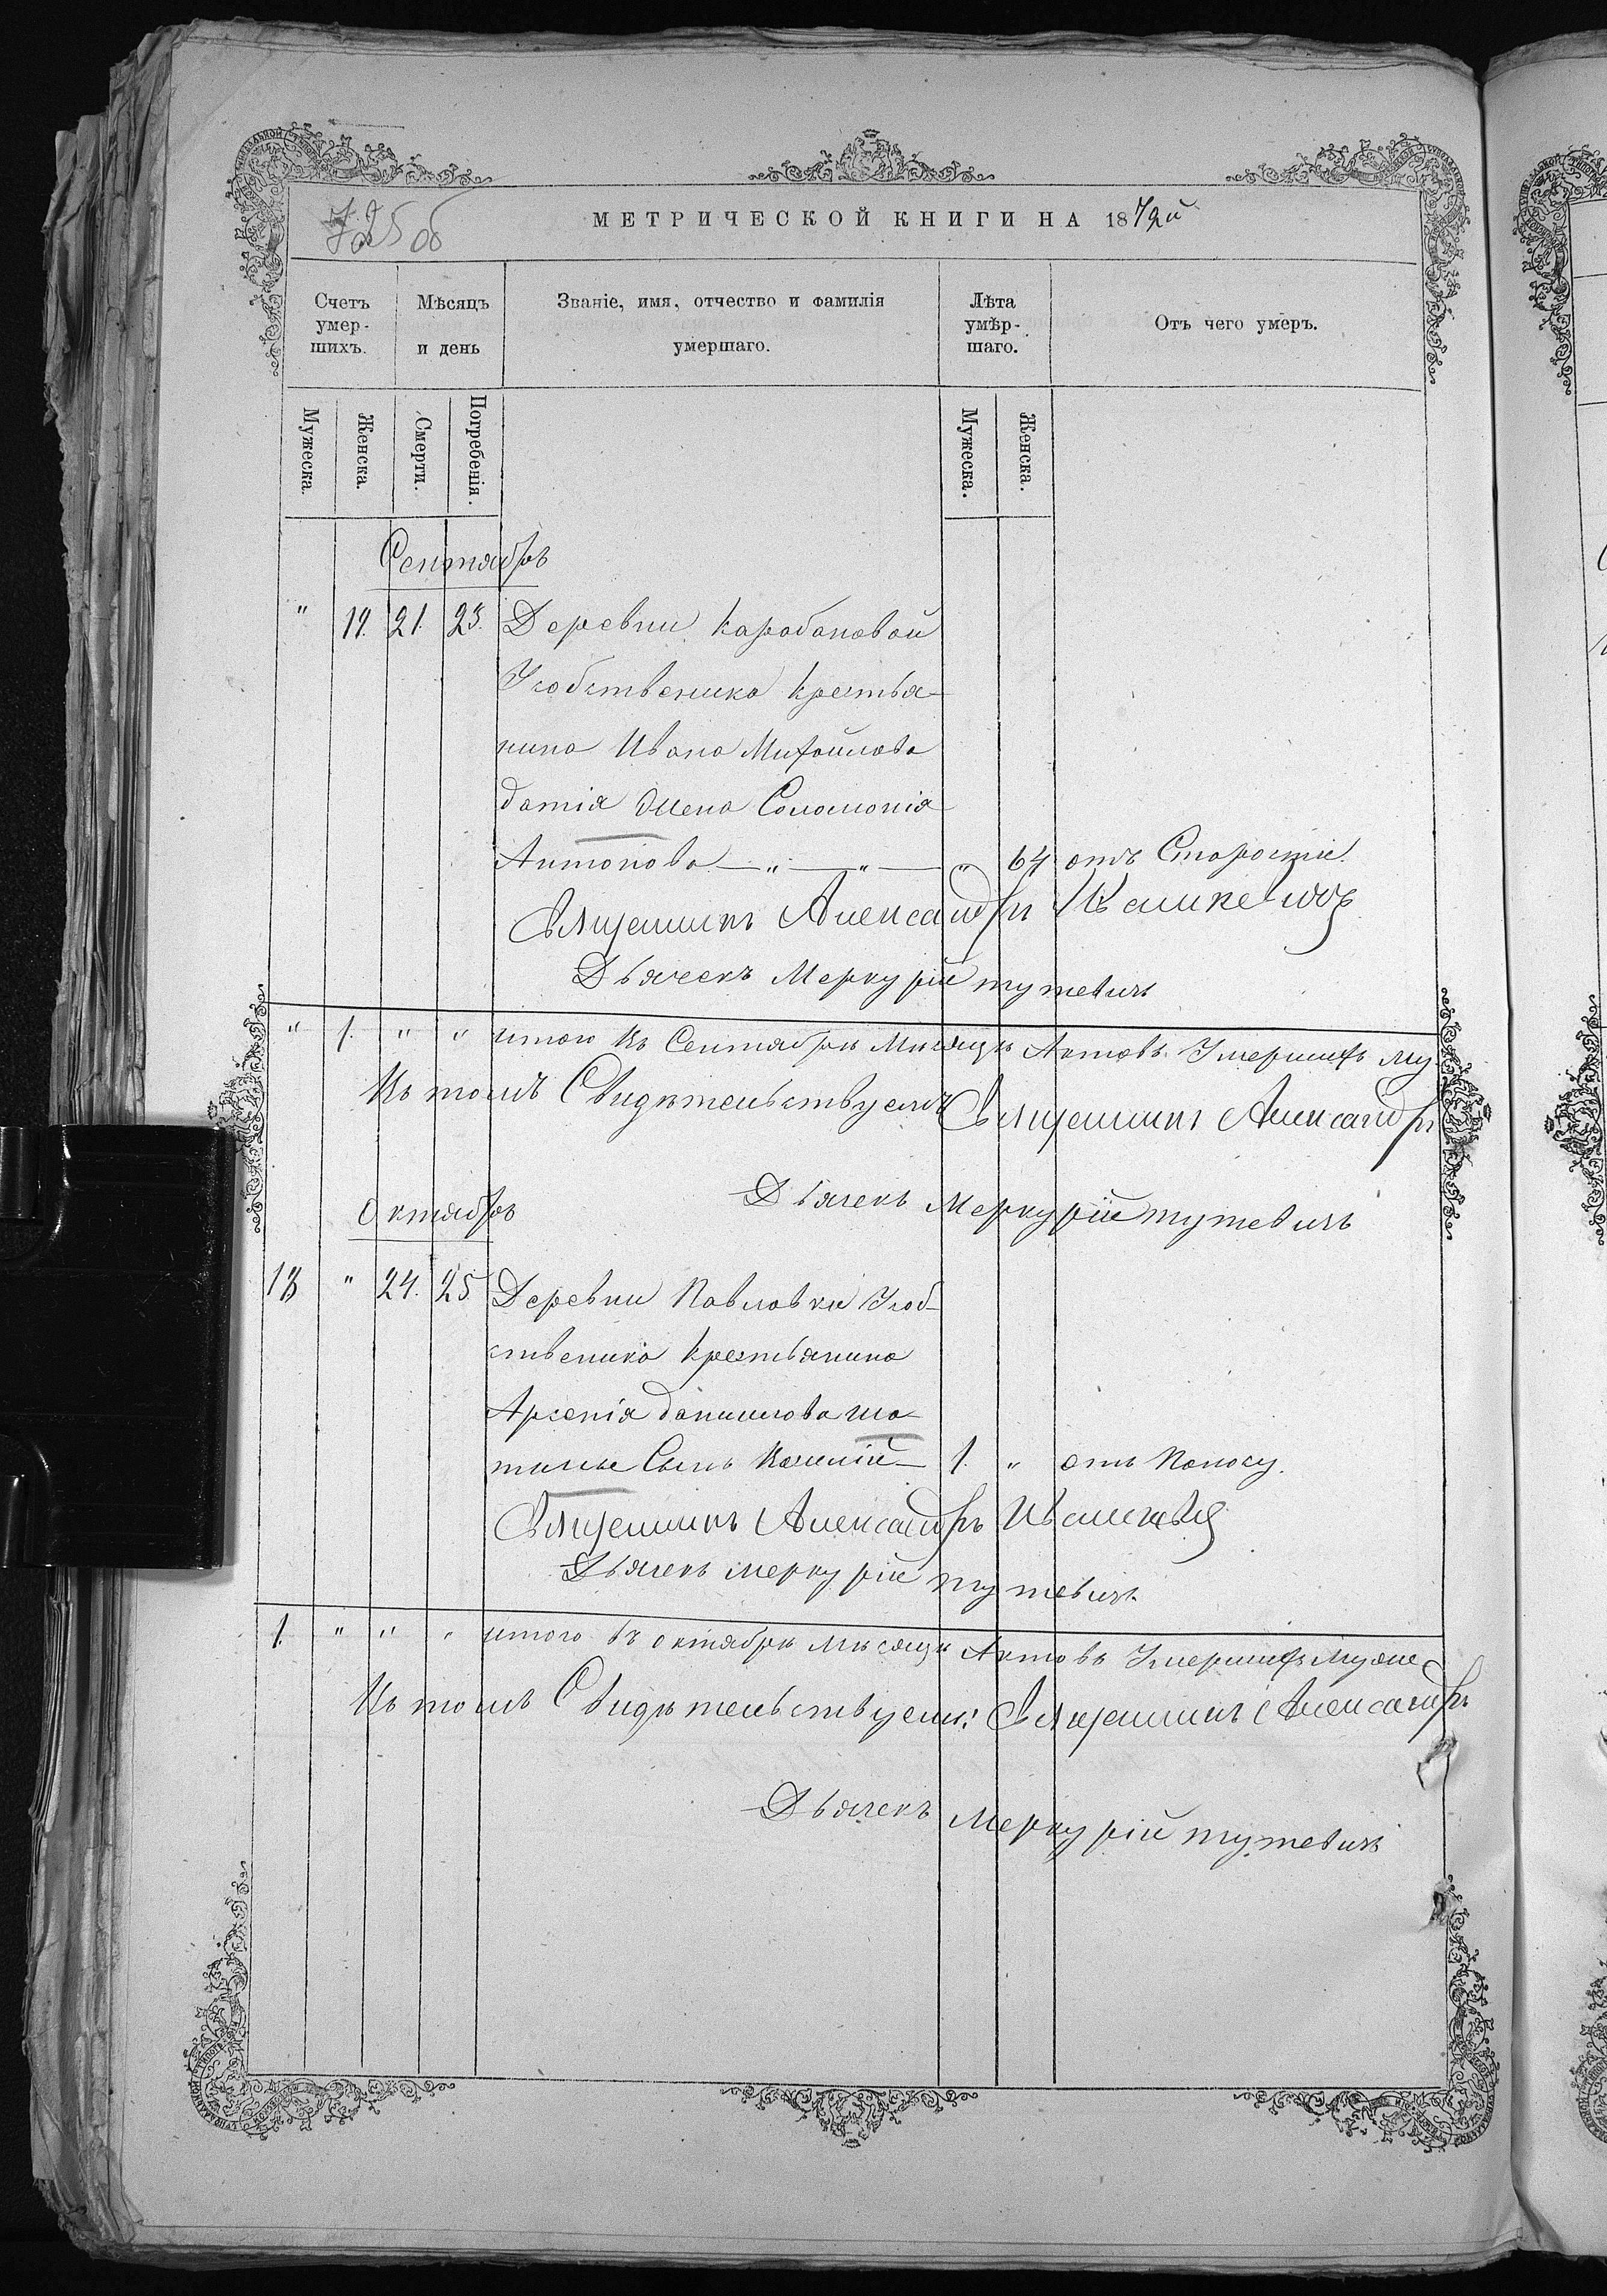 725 об
МЕТРИЧЕСКОЙ КНИГИ НА 1872й
Счетъ умер-шихъ.
Мѣсяцъ и день
Званіе, имя, отчество и фамилія умершаго.
Лѣта умѣр-шаго.
Отъ чего умеръ.
Мужеска.
Женска.
Смерти.
Погребенія.
Мужеска.
Женска.
Сентябрь
" 19. 21. 23. Деревни Карабановой
Усобственика крестья-
нина Ивана Михайлова
Жена Соломонія
Антонова — " — " — " 64 отъ Старости.
Священникъ Александръ Ивашкевичъ
Дьячекъ Меркурій Тутевичъ
" 1. " " итого въ Сентябрѣ Мѣсяцѣ Актовъ Умершихъ му
Въ томъ Свидѣтельствуемъ Священникъ Александръ
Дьячекъ Меркурій Тутевичъ
Октябрь
18 " 24. 25 Деревни Павловки Усоб-
ственика Крестьянина
Арсенія Данилова
Сынъ 1. " отъ Поносу.
Священникъ Александръ Ивашкевич
Дьячекъ Меркурій Тутевичъ
1. " " " итого въ октябрѣ мѣсяцѣ Актовъ Умершихъ муже
Въ томъ Свидѣтельствуемъ: Священникъ Александръ
Дьячекъ Меркурій Тутевичъ